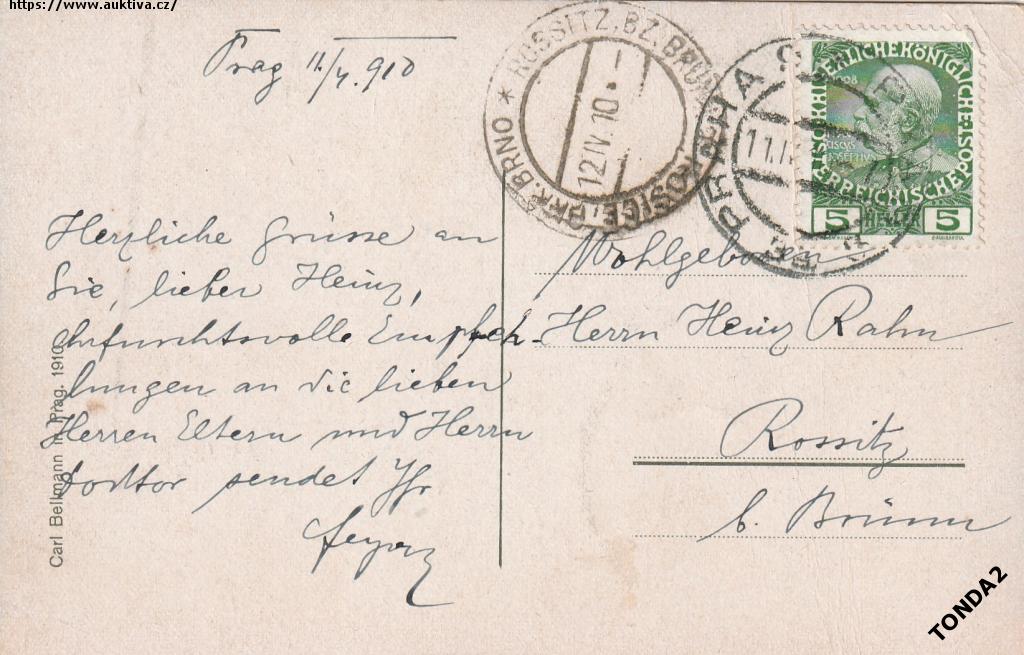 https://www.auktiva.cz/
Prag 11./4. 910
ROSSITZ. BZ. BRÜNN * ROSICE. OKR. BRNO *
12 IV. 10
PRAHA
11.IV
KAISERLICHE KÖNIGLICHE POST
ÖSTERREICHISCHE
5 5
Herzliche Grüsse an
Sie, lieber Heinz,
ehrfurchtsvolle Empfeh-
lungen an die lieben
Herren Eltern und Herrn
Doktor sendet Ihr
Wohlgeboren
Herrn Heinz Rahn
Rossitz
b. Brünn
Carl Bellmann in Prag. 1910
TONDA2